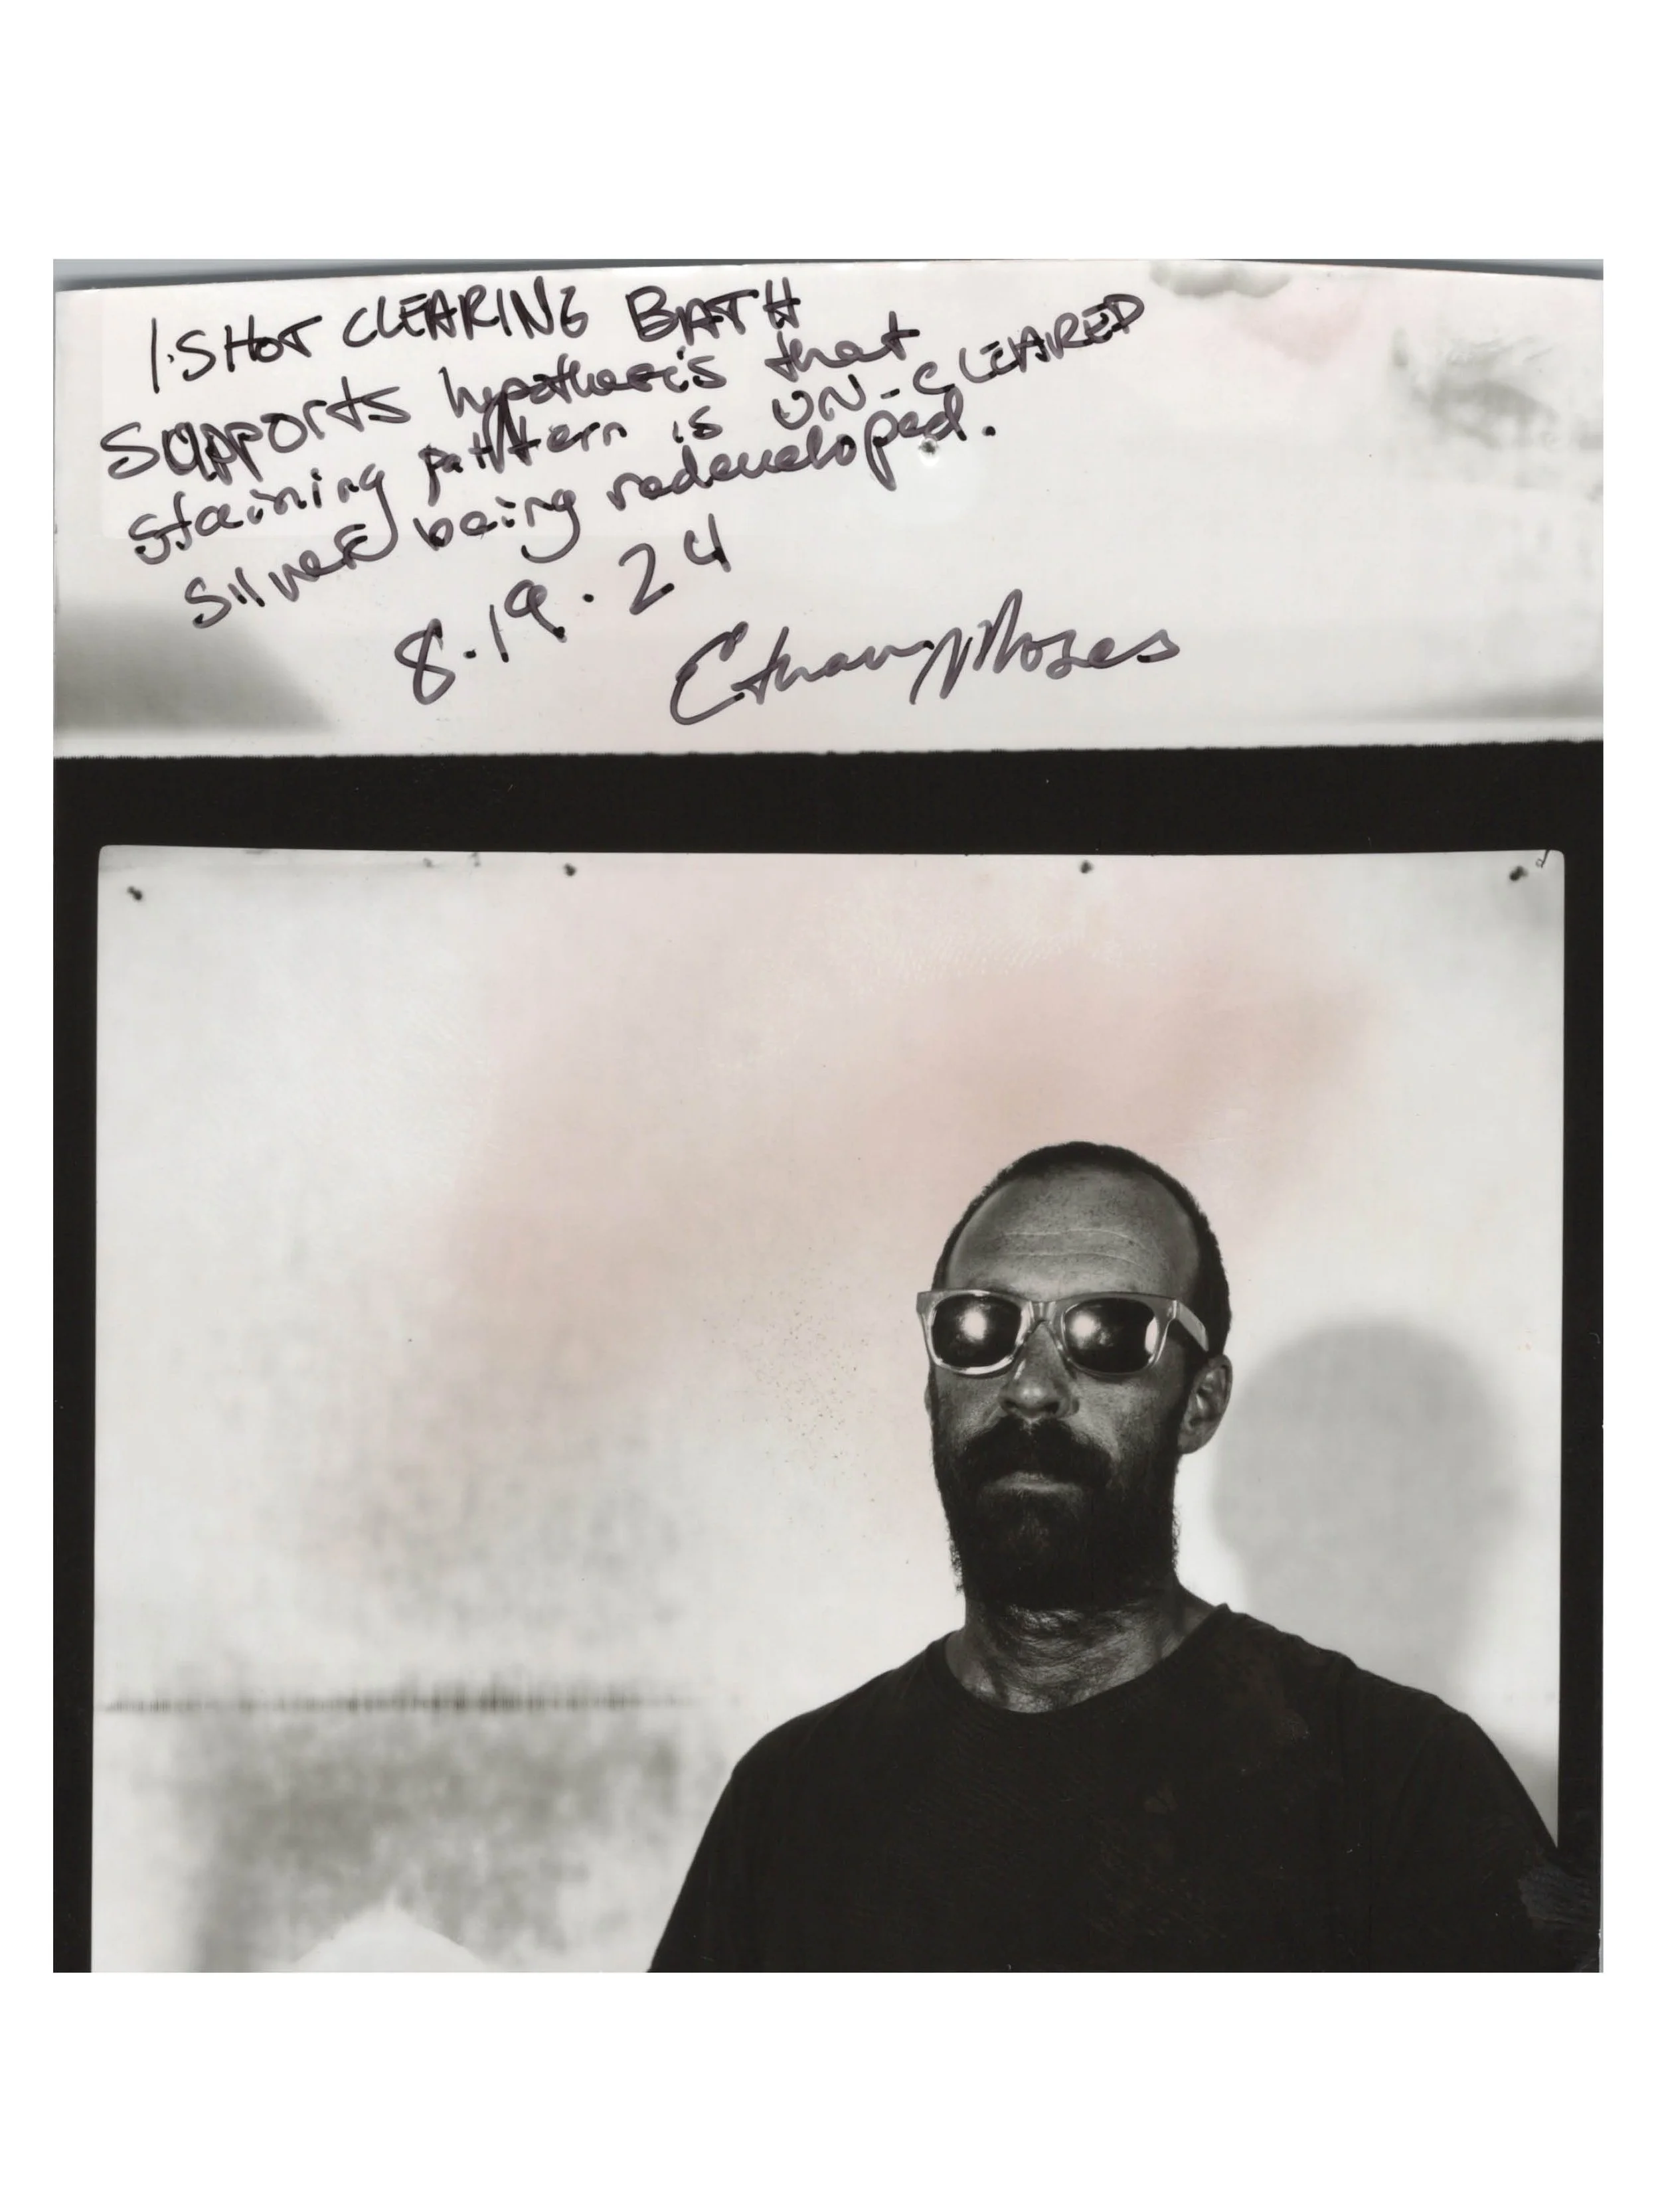 1·SHOT CLEARING BATH
Supports hypothesis that
staining pattern is UN-CLEARED
silver being redeveloped.
8.19.24
Ethan Moses